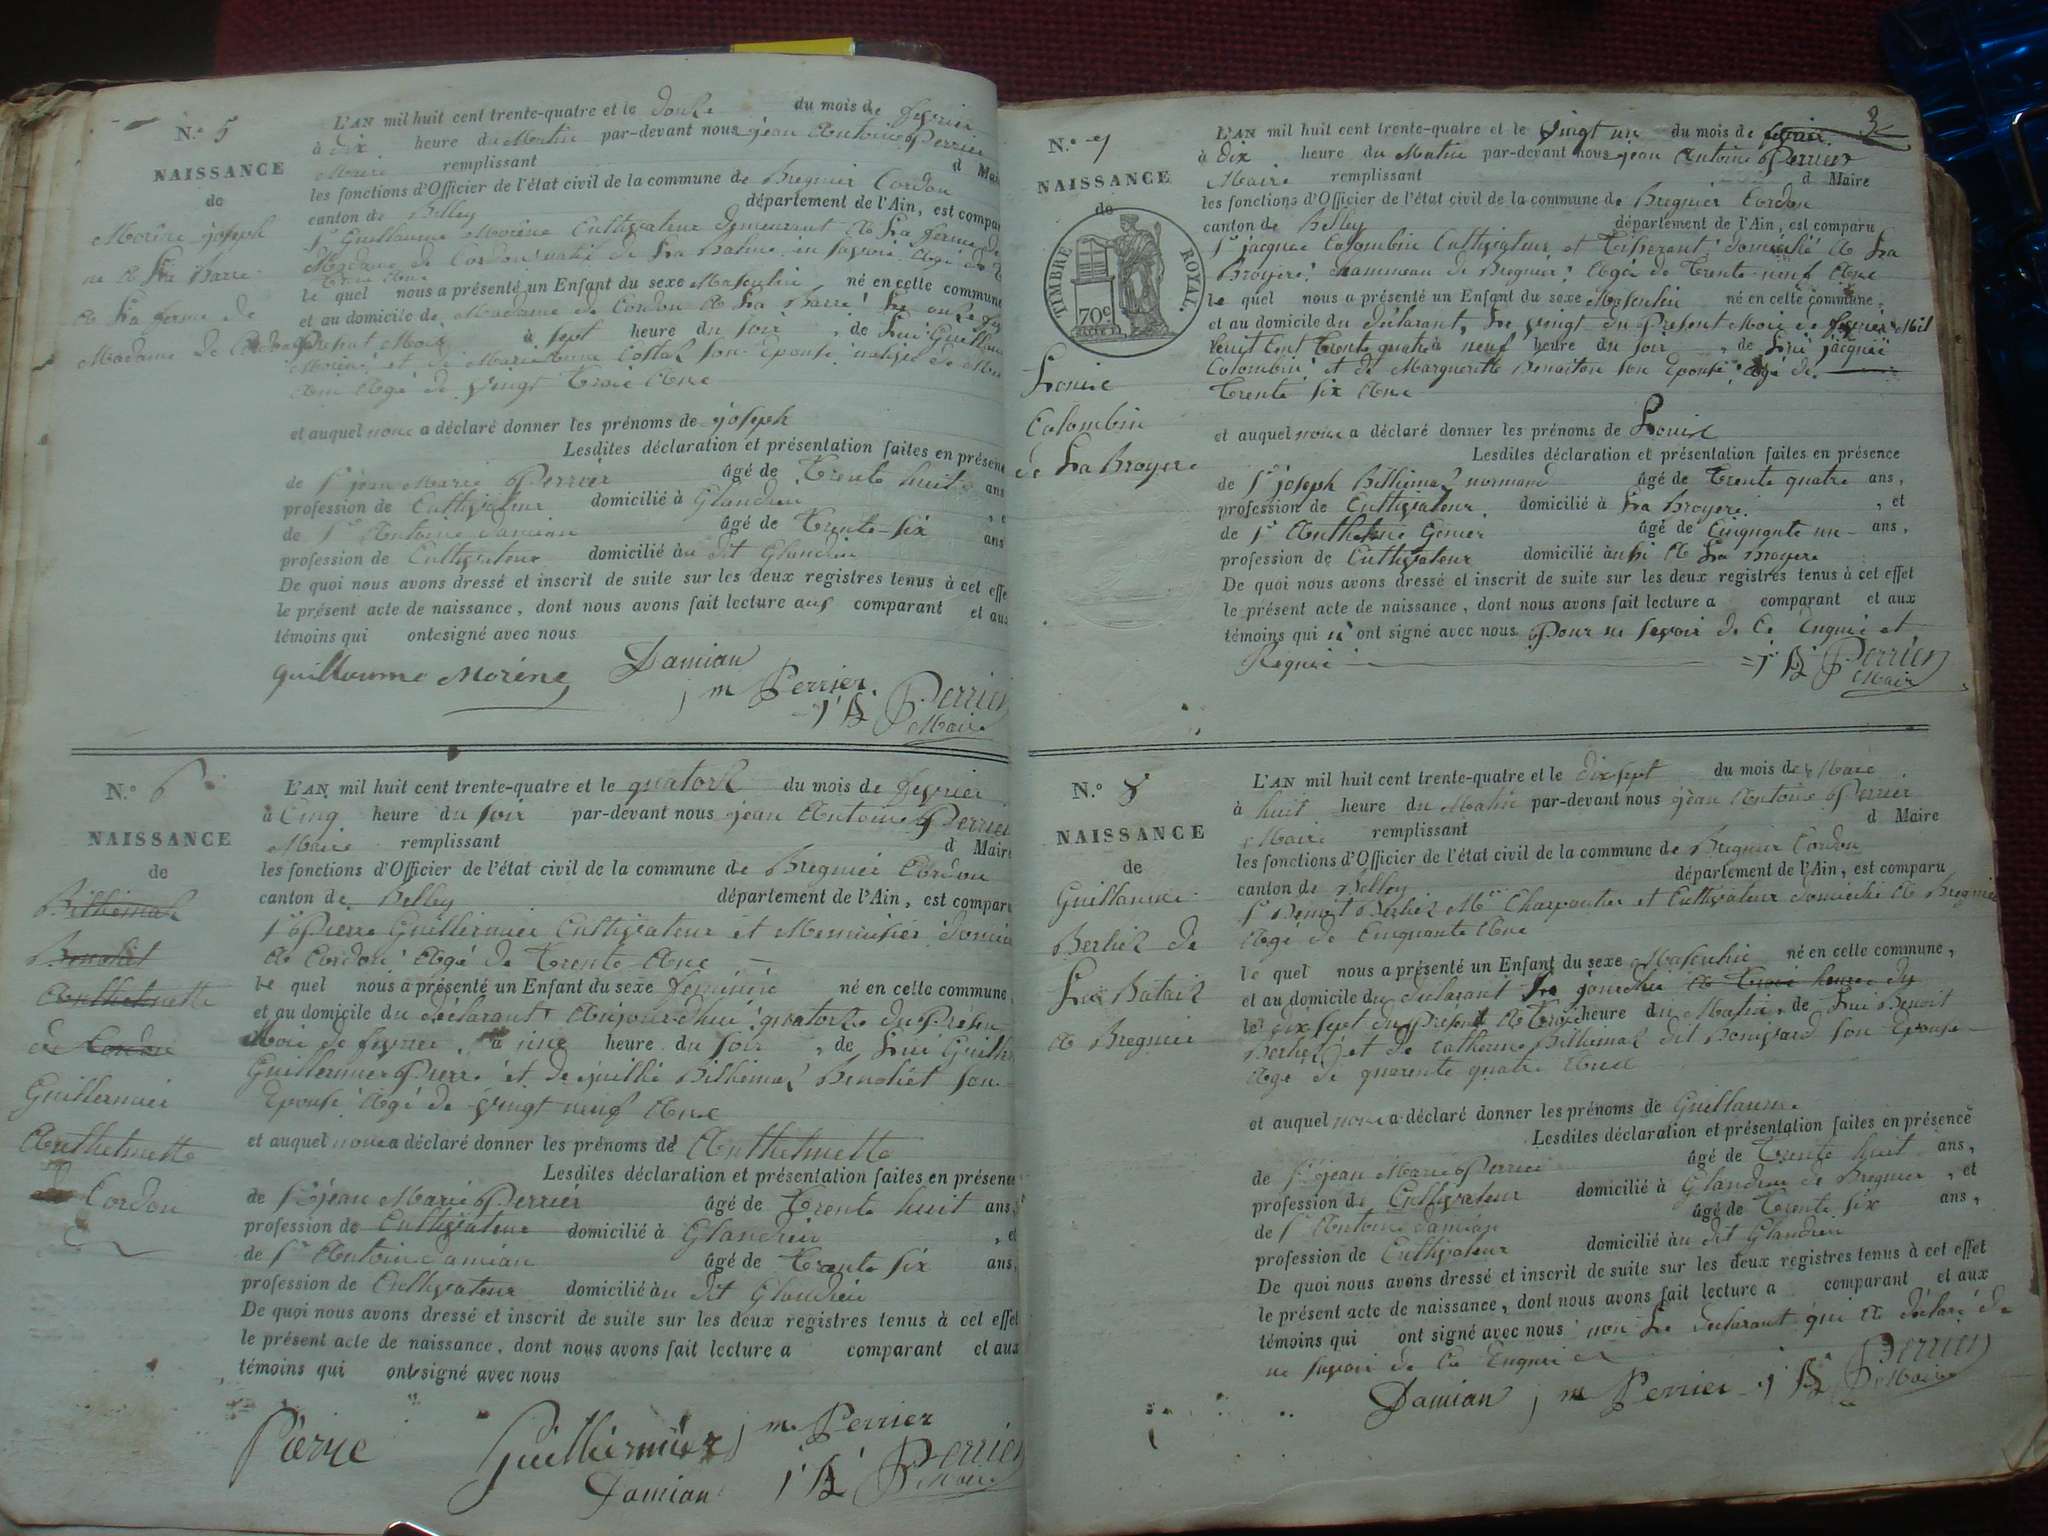 N.º 5
NAISSANCE
de
Morène joseph
né à La Barre
à La ferme de
Madame de Cordon
L'AN mil huit cent trente-quatre et le douze du mois de fevrier
à dix heure du Matin par-devant nous jean Antoine Perrier
Maire remplissant d Maire
les fonctions d'Officier de l'état civil de la commune de Bregnier Cordon
canton de Belley département de l'Ain, est compar
Sr Guillaume Morène Cultivateur demeurant à La ferme de
Madame de Cordon natif de La Balme en Savoie Agé de
trente Ans
le quel nous a présenté un Enfant du sexe Masculin né en cette commune
et au domicile de Madame de Cordon à La Barre Le onze
présent Mois à sept heure du soir , de Lui Guillau
Morène et de Marie Anne Costaz son Epouse native de
Agé de vingt trois Ans
et auquel nous a déclaré donner les prénoms de joseph
Lesdites déclaration et présentation faites en présen
de Sr jean Marie Perrier âgé de Trente huit ans
profession de Cultivateur domicilié à Glandieu , e
de Sr Antoine Damian âgé de Trente-six ans
profession de Cultivateur domicilié àu dit Glandieu
De quoi nous avons dressé et inscrit de suite sur les deux registres tenus à cet effe
le présent acte de naissance, dont nous avons fait lecture aus comparant et aux
témoins qui ont signé avec nous
guillaume Morène Damian
j m Perrier
Perrier
Maire
N.º 6
NAISSANCE
de
Bithemaz
Benoliet
Anthelmette
de Cordon
Guillermier
Anthelmette
d Cordon
L'AN mil huit cent trente-quatre et le quatorze du mois de fevrier
à Cinq heure du soir par-devant nous jean Antoine Perrier
Maire remplissant d Maire
les fonctions d'Officier de l'état civil de la commune de Bregnier Cordon
canton de Belley département de l'Ain, est compar
Sr Pierre Guillermier Cultivateur et Menuisier domici
à Cordon Agé de Trente Ans
le quel nous a présenté un Enfant du sexe feminine né en cette commune,
et au domicile du déclarant Aujourd'hui quatorze du Présen
Mois de fevrier à une heure du soir , de Lui
Guillermier Pierre et de julie Bithemaz Benoliet son
Epouse Agé de vingt neuf Ans
et auquel nous a déclaré donner les prénoms de Anthelmette
Lesdites déclaration et présentation faites en présence
de Sr jean Marie Perrier âgé de Trente huit ans,
profession de Cultivateur domicilié à Glandieu , et
de Sr Antoine Damian âgé de Trente six ans,
profession de Cultivateur domicilié àu dit Glandieu
De quoi nous avons dressé et inscrit de suite sur les deux registres tenus à cet effet
le présent acte de naissance, dont nous avons fait lecture a comparant et aux
témoins qui ont signé avec nous
Pierre Guillermier j m Perrier
Damian Perrier
Maire
3
N.º 7
NAISSANCE
de
TIMBRE ROYAL.
70c
Louis
Colombin
de La Broyere
L'AN mil huit cent trente-quatre et le vingt un du mois de fevrier
à dix heure du Matin par-devant nous jean Antoine Perrier
Maire remplissant d Maire
les fonctions d'Officier de l'état civil de la commune de Bregnier Cordon
canton de Belley département de l'Ain, est comparu
Sr jacques Colombin Cultivateur et Tisserant domicilié à La
Broyere hammeau de Bregnier Agé de Trente neuf Ans
le quel nous a présenté un Enfant du sexe Masculin né en cette commune,
et au domicile du déclarant, Le vingt du Présent Mois de fevrier Mil
huit Cent Trente quatre à neuf heure du soir , de Lui jacques
Colombin et de Marguerite Benoiton son Epouse Agé de
Trente six Ans
et auquel nous a déclaré donner les prénoms de Louis
Lesdites déclaration et présentation faites en présence
de Sr joseph Bithemaz normand âgé de Trente quatre ans,
profession de Cultivateur domicilié à La Broyere , et
de Sr Anthelme Genier âgé de Cinquante un ans,
profession de Cultivateur domicilié àussi à La Broyere
De quoi nous avons dressé et inscrit de suite sur les deux registres tenus à cet effet
le présent acte de naissance, dont nous avons fait lecture a comparant et aux
témoins qui n'ont signé avec nous Pour ne savoir de Ce Enquis et
Requis Perrier
Maire
N.º 8
NAISSANCE
de
Guillaume
Berliez de
Luis Batais
à Bregnier
L'AN mil huit cent trente-quatre et le dix sept du mois de Mars
à huit heure du Matin par-devant nous jean Antoine Perrier
Maire remplissant d Maire
les fonctions d'Officier de l'état civil de la commune de Bregnier Cordon
canton de Belley département de l'Ain, est comparu
Sr Benoit Berliez Mtre Charpentier et Cultivateur domicilié à Bregnier
Agé de Cinquante Ans
le quel nous a présenté un Enfant du sexe Masculin né en cette commune,
et au domicile du déclarant Le jourdhui à Trois heure du
le dix sept du Présent à Trois heure du Matin, de Lui Benoit
Berliez et de Catherine Bithemaz dit Bonipard son Epouse
Agé de quarente quatre Ans
et auquel nous a déclaré donner les prénoms de Guillaume
Lesdites déclaration et présentation faites en présence
de Sr jean Marie Perrier âgé de Trente huit ans,
profession de Cultivateur domicilié à Glandieu de Bregnier , et
de Sr Antoine Damian âgé de Trente six ans,
profession de Cultivateur domicilié àu dit Glandieu
De quoi nous avons dressé et inscrit de suite sur les deux registres tenus à cet effet
le présent acte de naissance, dont nous avons fait lecture a comparant et aux
témoins qui ont signé avec nous non Le declarant qui a déclaré de
ne savoir de Ce Enquis
Damian j m Perrier Perrier
Maire